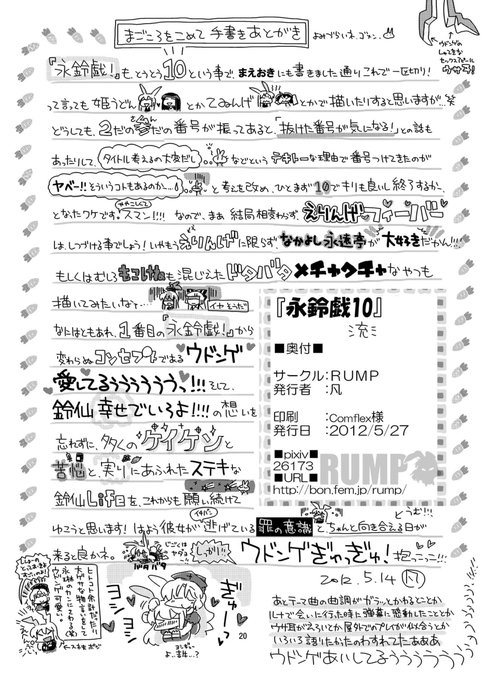 まごころをこめて 手書きあとがき
よみづらいネ。ゴメン。
『永鈴戯!』も、とうとう10という事で、まえおきにも書きました通りこれで一区切り!
って言っても姫うどんとかてゐんげとかで描いたりすると思いますが…笑
どうしても、2だの参だの番号が振ってあると、「抜けた番号が気になる!」との話も
あったりして、タイトル考えるの大変だし などというテキトーな理由で番号つけてきたのが
ヤベー!!そういうコトもあるのか… と考えを改め、ひとまず10でキリも良いし終了するか、
となったワケです。スマン!!! なので、まあ 結局相変わらず、えりんげフィーバー
は、しつづける事でしょう!いやもうえりんげに限らず、なかよし永遠亭が大好きだかん!!!
もしくはむしろもこけねも混じえたドタバタメチャクチャなやつも
描いてみたいな…
なにはともあれ、1番目の『永鈴戯!』から
変わらぬコンセプトであるウドンゲ
愛してるぅぅぅぅぅぅっ!!!そして、
鈴仙 幸せでいろよ!!!!の想いを
忘れずに、多くのゲイケンと
苦悩と、実りにあふれたステキな
鈴仙Lifeを、これからも願い続けて
ゆこうと思います!はよう彼女が逃げている罪の意識と、ちゃんと向き合える日が
来ると良かネ。
ウドンゲぎゅっぎゅ!抱っこっ!!!
『永鈴戯10』
■奥付■
サークル:RUMP
発行者 :凡
印刷 :Comflex様
発行日 :2012/5/27
■pixiv■
26173
■URL■
http://bon.fem.jp/rump/
RUMP
ぎゅーっ
ヨシヨシ
ヨシヨシ
20
2012.5.14 凡
あとテーマ曲の曲調がガラッとかわるとことか
ルナで会いに行った時に弾幕に感動したことか
いろいろ語りたかったのわすれてたあああ
ウドンゲあいしてるぅぅぅぅぅぅぅ